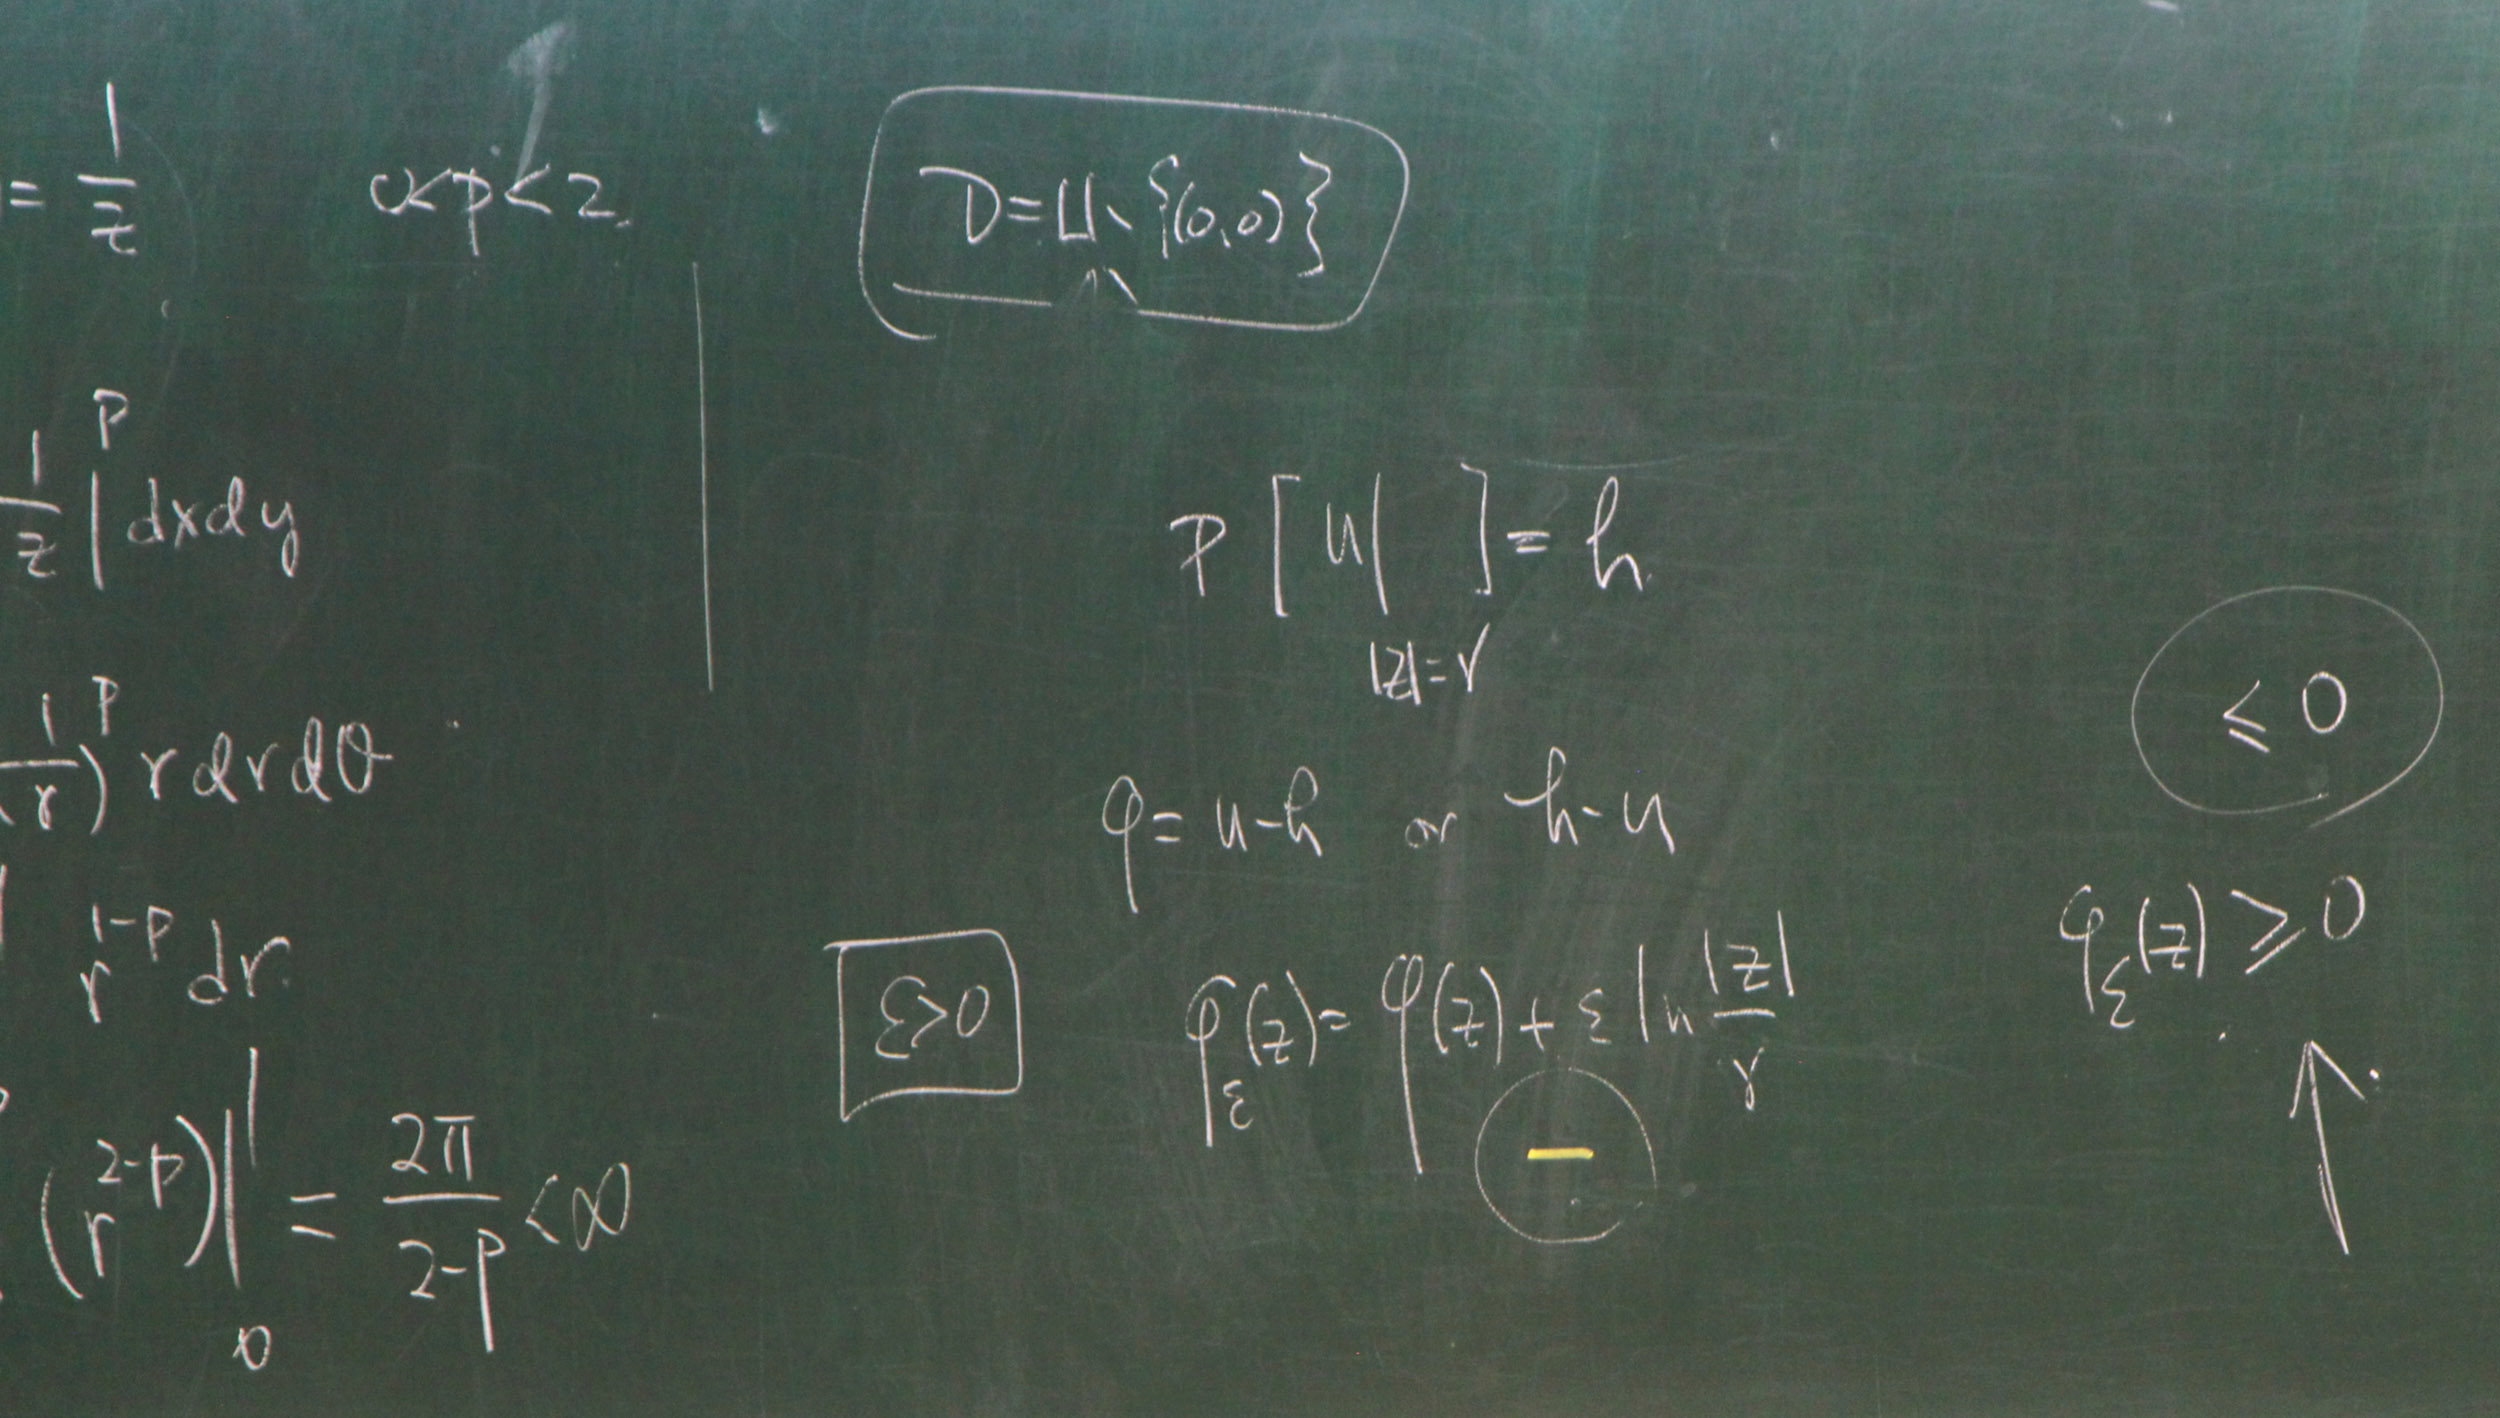 = 1/z
0<p<2.
1/z|^p dxdy
1/r)^p r dr dθ
r^{1-p} dr.
(r^{2-p})|_0^1 = 2π/(2-p) < ∞
D = U \ {(0,0)}
P[u| ] = h
|z|=r
φ = u-h or h-u
ε>0
φ_ε(z) = φ(z) + ε ln |z|/r
−
≤ 0
φ_ε(z) ≥ 0